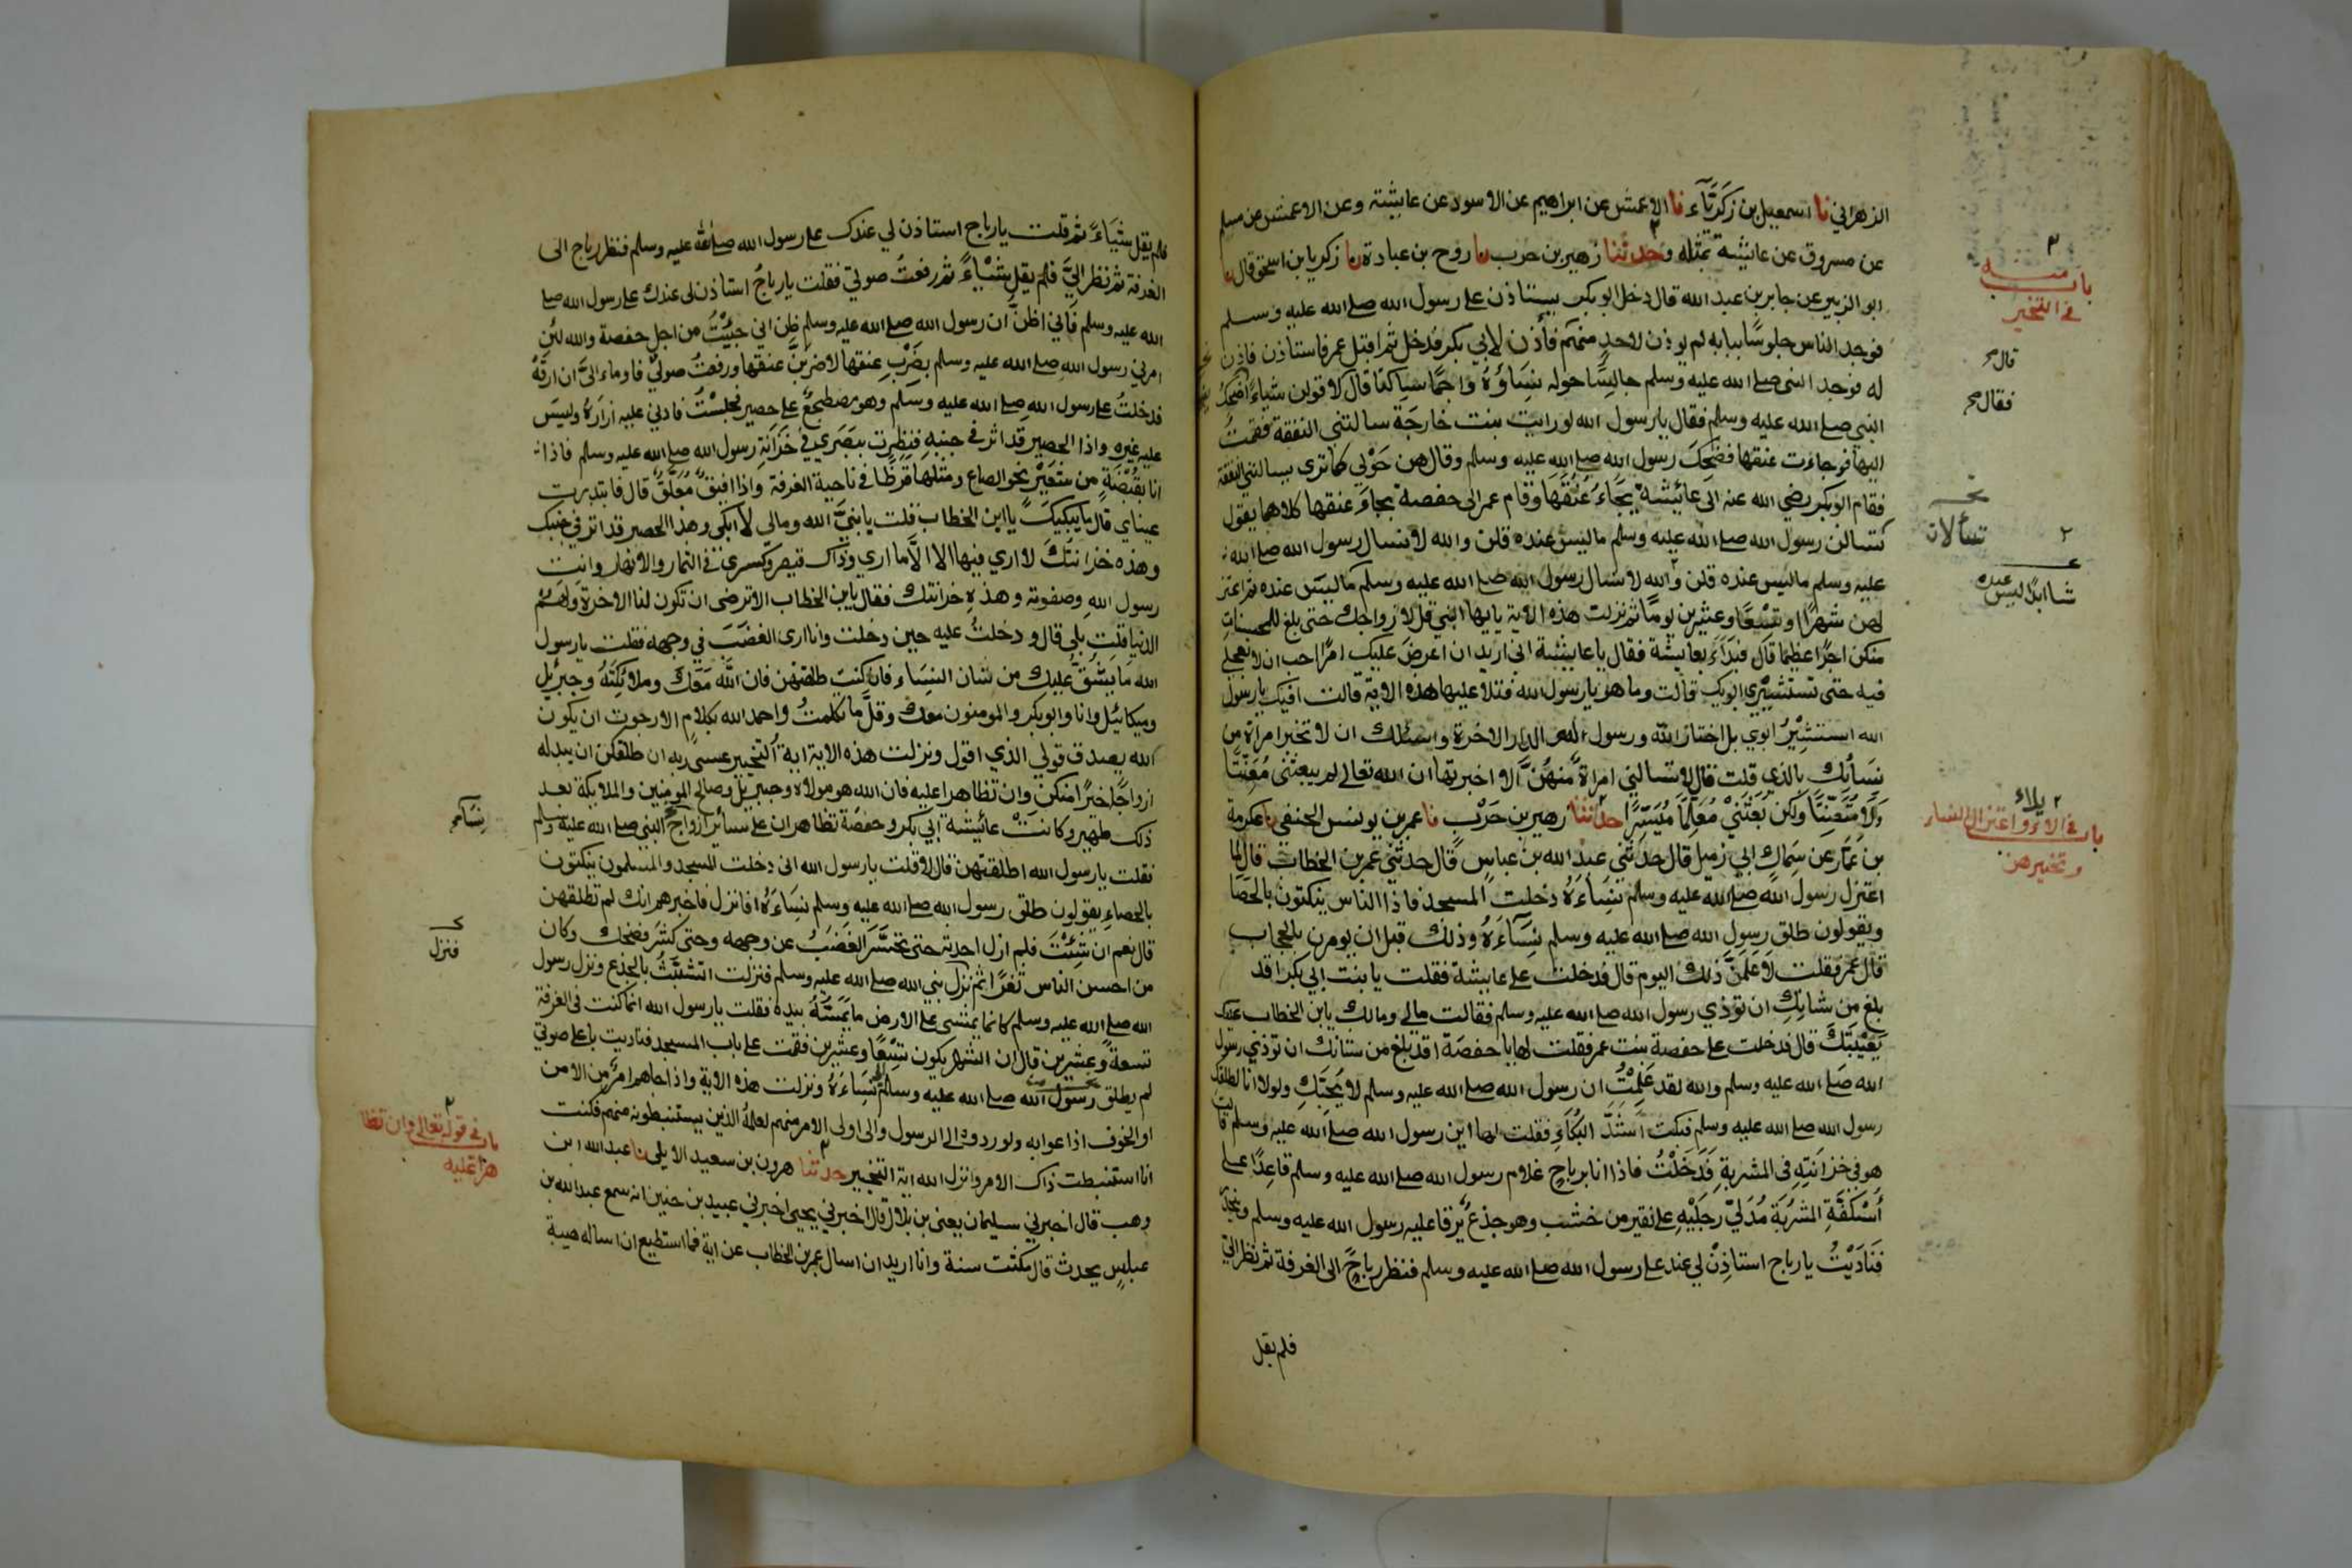 الزهراني نا اسمعيل بن زكريّاء نا الاعمش عن ابراهيم عن الاسود عن عايشة وعن الاعمش عن مسلم
عن مسروق عن عايشة بمثله وحدثنا زهير بن حرب نا روح بن عبادة نا زكريا بن اسحق قال نا
ابو الزبير عن جابر بن عبد الله قال دخل ابو بكر يستاذن على رسول الله صلى الله عليه وسلم
فوجد الناس جلوسًا ببابه لم يوذن لاحدٍ منهم فأذن لابي بكر فدخل ثم اقبل عمر فاستاذن فاذن
له فوجد النبي صلى الله عليه وسلم جالِسًا حوله نِسَاؤُهُ واجمًا ساكتًا قال لاقولن شياءً اُضحِكُ
النبي صلى الله عليه وسلم فقال يا رسول الله لو رايت بنت خارجَة سالتني النفقة فقمتُ
اليها فوجاءت عنقها فضَحِكَ رسول الله صلى الله عليه وسلم وقال هن حَوْلِي كما ترى يسالنني النفقة
فقام ابو بكر رضي الله عنه الى عائشة يَجَاءُ عُنُقَهَا وقام عمر الى حفصة يجاءُ عنقها كلاهما يقول
تسالن رسول الله صلى الله عليه وسلم ما ليس عنده قلن والله لا نسال رسول الله صلى الله
عليه وسلم ما ليس عنده قلن والله لا نسال رسول الله صلى الله عليه وسلم ما ليس عنده ثم اعتز
لهن شهرًا او تِسْعًا وعشرين يومًا ثم نزلت هذه الاية يايها النبي قل لازواجك حتى بلغ للمحسنات
منكن اجرًا عظيما قال فبَدَاءَ بعايشة فقال يا عايشة اني اريد ان اعرض عليك امرًا احب ان لا تعجلي
فيه حتى تستشيري ابويك قالت وما هو يا رسول الله فتلا عليها هذه الاية قالت افيك يا رسول
الله استشيرُ ابوي بل اختار الله ورسوله والدار الاخرة واسئلك ان لا تخبر امراة من
نِسَائِك بالذي قلت قال لا تسالني امراة مِّنهُنَّ الا اخبرتها ان الله تعالى لم يبعثني مُعَنِّتًا
وَلَا مُتَعَنِّتًا ولكن بَعَثَنِيْ مُعَلِّمًا مُيَسِّرًا حدثنا زهير بن حَرْبٍ نا عمر بن يونس الحنفي نا عكرمة
بن عَمّار عن سِمَاك ابي زميل قال حدثني عبد الله بن عباس قال حدثني عمر بن الخطاب قال لما
اعتزل رسول الله صلى الله عليه وسلم نِسَاءَهُ دخلت المسجد فاذا الناس ينكتون بالحَصَا
ويقولون طلق رسول الله صلى الله عليه وسلم نِسَاءَهُ وذلك قبل ان يومرن بالحجاب
قال عمر فقلت لاَعلَمَنَّ ذلك اليوم قال فدخلت على عايشة فقلت يا بنت ابي بكر اقد
بلغ من شانِكِ ان توذي رسول الله صلى الله عليه وسلم فقالت مالي ومالك يابن الخطاب عليك
بِعَيْبَتِكَ قال فدخلت على حفصة بنت عمر فقلت لها يا حفصة اقد بلغ من شانك ان توذي رسول
الله صلى الله عليه وسلم والله لقد عَلِمْتُ ان رسول الله صلى الله عليه وسلم لا يُحِبُّكِ ولولا انا لطلقك
رسول الله صلى الله عليه وسلم فبكت اَشَدَّ البُكَاءِ فقلت لها اين رسول الله صلى الله عليه وسلم قالت
هو في خزانتِهِ في المشربةِ فَدَخَلْتُ فاذا انا برباحٍ غلام رسول الله صلى الله عليه وسلم قاعِدًا على
أُسْكُفَّةِ المشرُبَة مُدَلٍّ رجلَيْهِ على نقير من خشب وهو جذعٌ يرقا عليه رسول الله عليه وسلم وينحدر
فَنَادَيْتُ يا رباح استاذِنْ لي عندك على رسول الله صلى الله عليه وسلم فنظر رباحٌ الى الغرفة ثم نظر اليّ
فلم يقل
باب منه
في التخير
قال
فقال
تسألان
شيئا ابدًا ليس عنده
باب في الايلاء واعتزال النساء
وتخييرهن
فلم يقل شياءً ثم قلت يا رباح استاذن لي عندك على رسول الله صلى الله عليه وسلم فنظر رباح الى
الغرفة ثم نظر اليَّ فلم يقل شَيْاءً ثم رفعتُ صوتي فقلت يا رباحُ استاذن لي عندك على رسول الله صلى
الله عليه وسلم فاني اظنّ ان رسول الله صلى الله عليه وسلم ظن اني جِئْتُ من اجل حفصة والله لئن
امرني رسول الله صلى الله عليه وسلم بضَرْبِ عنقها لاضربَنَّ عنقها ورفعتُ صوتي فاوماء اليَّ ان ارقَهْ
فدخلتُ على رسول الله صلى الله عليه وسلم وهو مضطجعٌ على حصير فجلسْتُ فادنى عليه ازارَهُ وليس
عليه غيره واذا الحصير قد اثر في جنبه فنظرت ببَصَري في خَزانةِ رسول الله صلى الله عليه وسلم فاذا
انا بقُبْضَةٍ من شعيْرٍ نحو الصاع ومثلها قرظًا في ناحية الغرفة واذا افيقٌ مُعَلَّقٌ قال فابتدرت
عيناي قال ما يبكيكَ يا ابن الخطاب قلت يا نبيَّ الله ومالي لا ابكي وهذا الحصير قد اثر في جنبك
وهذه خزانتكَ لا اري فيها الا ما اري وذاك قيصر وكسرى في الثمار والانهار وانت
رسول الله وصفوته وهذه خزانتك فقال يابن الخطاب الا ترضى ان تكون لنا الاخرة ولهم
الدنيا قلت بلى قال ودخلتُ عليه حين دخلت وانا ارى الغضَبَ في وجهه فقلت يا رسول
الله ما يَشُقُّ عليك من شان النِسَاء فان كنت طلقتهن فان الله مَعَكَ وملائكَتَهُ وجبريل
وميكائيل وانا وابو بكر والمومنون معك وقلّ ما تكلمتُ واحمد الله بكلام الا رجوت ان يكون
الله يصدق قولي الذي اقول ونزلت هذه الاية اية التخيير عسى ربه ان طلقكن ان يبدله
ازواجًا خيرًا منكن وان تظاهرا عليه فان الله هو مولاه وجبريل وصالح المومنين والملايكة بعد
ذلك ظهير وكانتْ عائيشة ابي بكر وحفصة تظاهران على سائر ازواج النبي صلى الله عليه وسلم
فقلت يا رسول الله اطلقتهن قال لا قلت يا رسول الله اني دخلت المسجد والمسلمون ينكتون
بالحصاءِ يقولون طلق رسول الله صلى الله عليه وسلم نِسَاءَهُ افانزل فاخبرهم انك لم تطلقهن
قال نعم ان شِئْتَ فلم ازل احدثه حتى تحسَّرَ الغَضَبُ عن وجهه وحتى كشر فضحك وكان
من احسن الناس ثغرًا ثم نزل نبي الله صلى الله عليه وسلم فنزلت اتشبَّثُ بالجذع ونزل رسول
الله صلى الله عليه وسلم كانما يمشي على الارض ما يَمَسُّهُ بيده فقلت يا رسول الله انما كنت في الغرفة
تسعةً وعشرين قال ان الشهر يكون تِسْعًا وعشرين فقمت على باب المسجد فناديت باعلى صوتي
لم يطلق رسول الله صلى الله عليه وسلم نِسَاءَهُ ونزلت هذه الاية واذا جاءهم امرٌ من الامن
او الخوف اذاعوا به ولو ردوه الى الرسول والى اولى الامر منهم لعلمهُ الذين يستنبطونه منهم فكنت
انا استنبطت ذاك الامر وانزل الله اية التخيير حدثنا هرون بن سعيد الايلي نا عبد الله ابن
وهب قال اخبرني سليمان يعني بن بلال قال اخبرني يحيى اخبرني عبيد بن حنين انه سمع عبد الله بن
عباسٍ يحدث قال مكثت سنة وانا اريد ان اسال عمر بن الخطاب عن اية فما استطيع ان اساله هيبة
نِسَاء
فنزل
باب في قوله تعالى وان تظا
هرا عليه